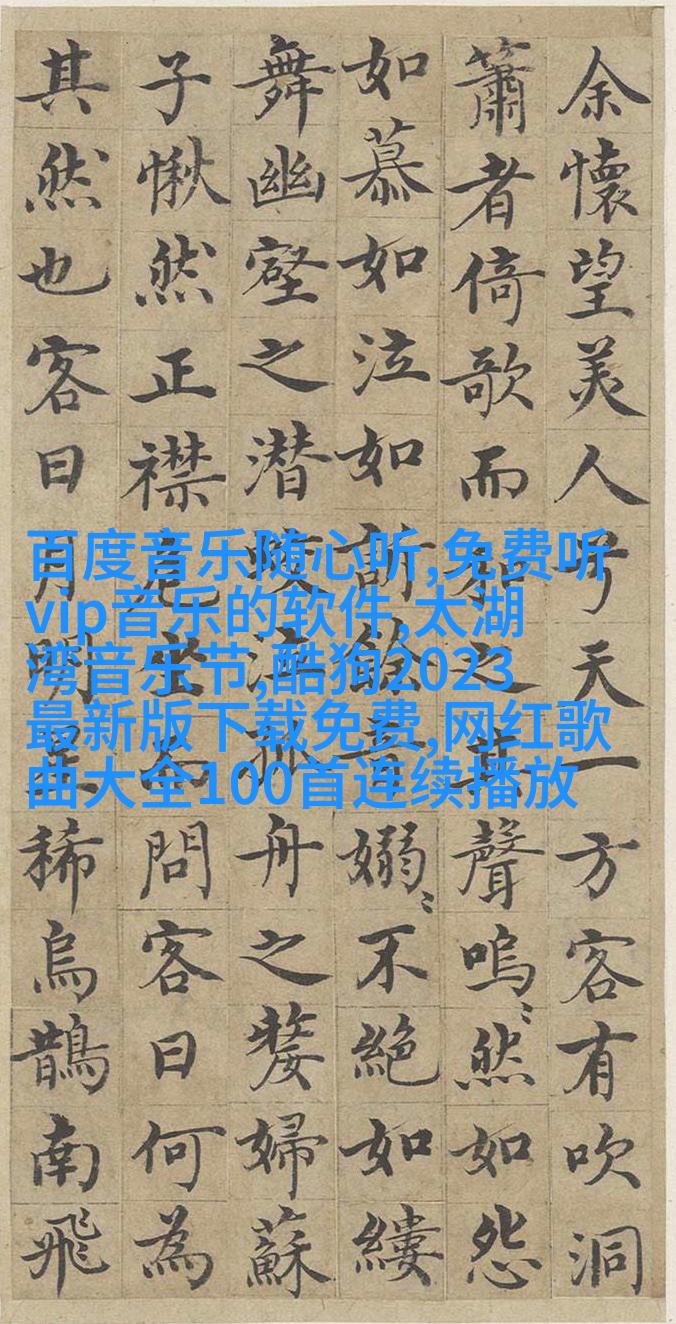 余懷望美人兮天一方客有吹洞
簫者倚歌而和之其聲嗚〻然如怨
如慕如泣如訴餘音嫋〻不絶如縷
舞幽壑之潜蛟泣孤舟之嫠婦蘇
子愀然正襟危坐而問客曰何為
其然也客曰月明星稀烏鵲南飛
百度音乐随心听,免费听
vip音乐的软件,太湖
湾音乐节,酷狗2023
最新版下载免费,网红歌
曲大全100首连续播放